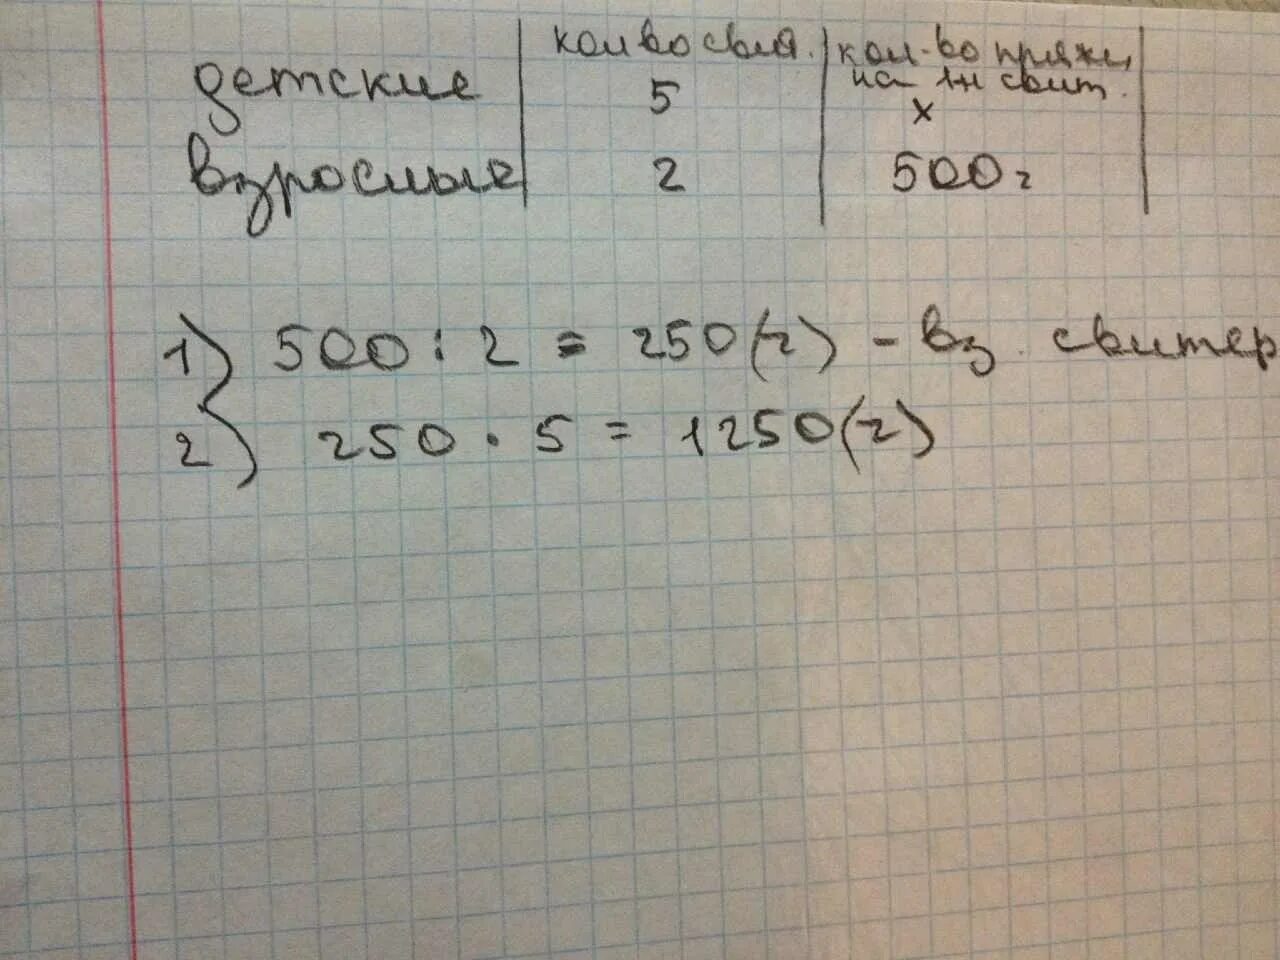 кол во свит. кол-во пряжи
детские 5 на 1н свит.
х
взрослые 2 500 г
1) 500 : 2 = 250 (г) - вз. свитер
2) 250 · 5 = 1250 (г)